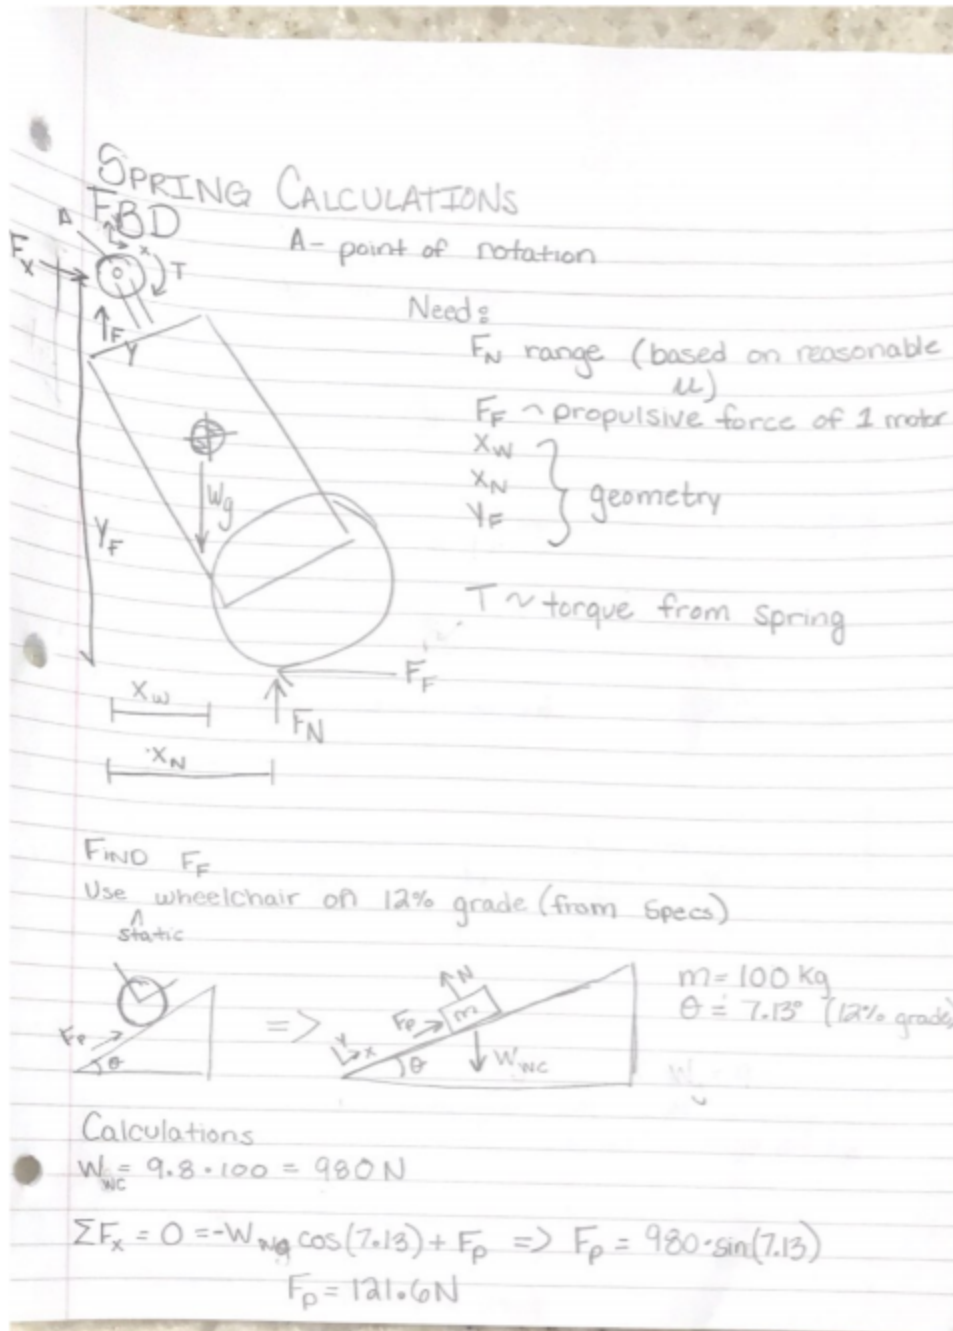 SPRING CALCULATIONS
FBD
A y x
A - point of rotation
F_x T
F_y
Need:
F_N range (based on reasonable
μ)
F_F ~ propulsive force of 1 motor
X_W
X_N
Y_F
geometry
W_g
Y_F
T ~ torque from spring
F_F
X_W
F_N
X_N
FIND F_F
Use wheelchair on 12% grade (from specs)
^
static
N
F_P m
m = 100 kg
θ = 7.13° (12% grade)
F_P =>
y x
θ θ W_WC
Calculations
W_WC = 9.8 · 100 = 980 N
ΣF_x = 0 = -W_wg cos(7.13) + F_P => F_P = 980·sin(7.13)
F_P = 121.6N